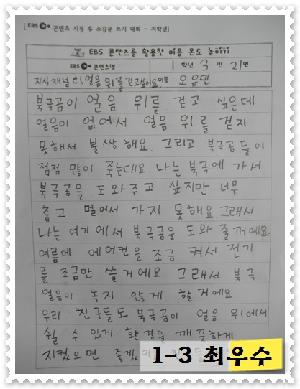 EBS 콘텐츠 시청 후 소감문 쓰기 대회 - 저학년
EBS 콘텐츠를 활용한 마음 온도 높이기
EBS 콘텐츠명
학년 반 번
지식채널e 얼음 위를 걷고싶어요 이름 오유민
북극곰이 얼음 위를 걷고 싶은데
얼음이 없어서 얼음 위를 걷지
못해서 불쌍해요 그리고 북극곰들이
점점 많이 죽는대요 나는 북극에 가서
북극곰을 도와주고 싶지만 너무
춥고 멀어서 가지 못해요 그래서
나는 여기에서 북극곰을 도와줄거에요
여름에 에어컨을 조금 켜서 전기
를 조금만 쓸거에요 그래서 북극
얼음이 녹지 않게 할거에요
우리 친구들도 북극곰이 얼음 위에서
쉴 수 있게 환경을 깨끗하게
지켰으면 좋겠
1-3 최우수